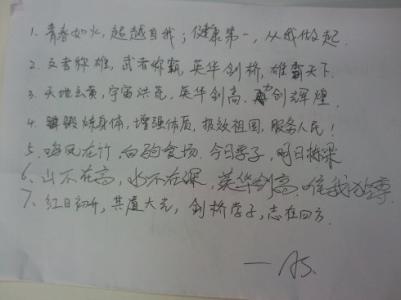 1. 青春如火，超越自我；健康第一，从我做起.
2. 文者称雄，武者称霸，英华剑桥，雄霸天下.
3. 天地玄黄，宇宙洪荒，英华剑高，创辉煌.
4. 锻炼身体，增强体质，报效祖国，服务人民！
5. 在计 向 今日学子，明日栋梁
6. 山不在高，水不在深，英华剑高，唯我
7. 红日初升，其道大光，剑桥学子，志在四方.